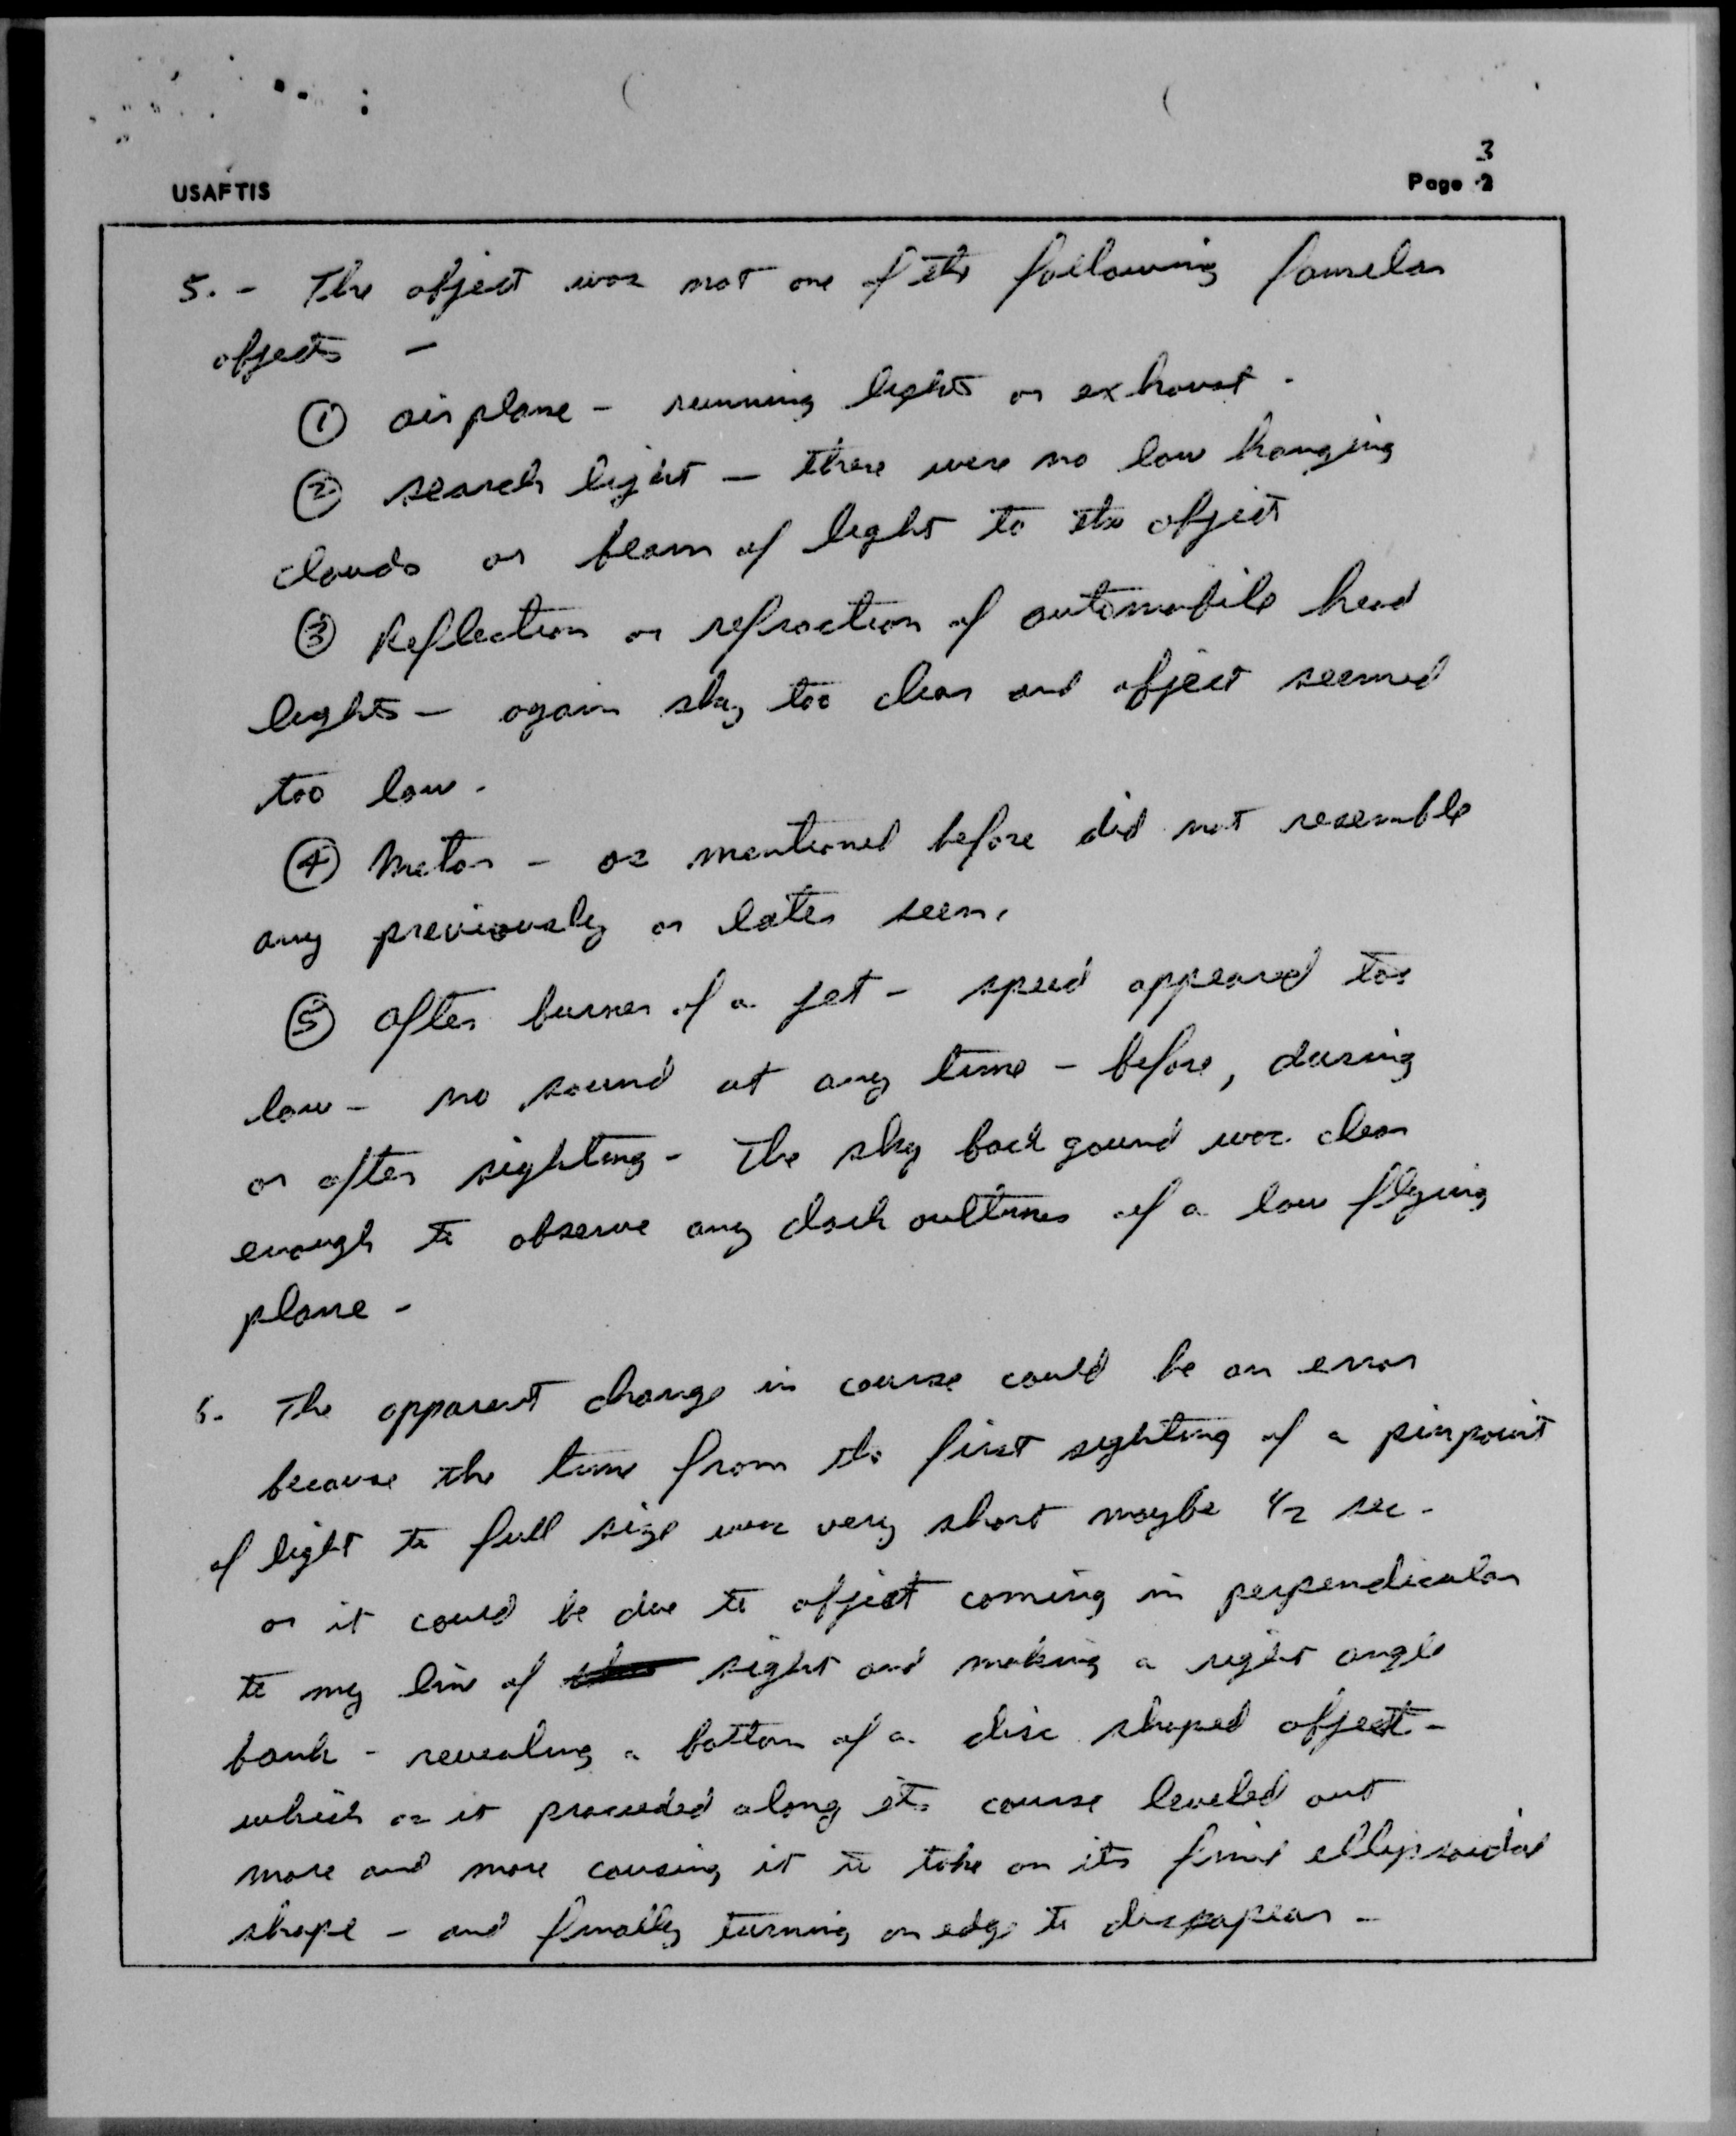 3
USAFTIS
Page 2
5. - The object was not one of the following familar
objects -
① airplane - running lights or exhaust.
② search light - there were no low hanging
clouds or beam of light to the object
③ Reflection or refraction of automobile head
lights - again sky too clear and object seemed
too low.
④ Meteor - as mentioned before did not resemble
any previously or later seen.
⑤ after burner of a jet - speed appeared too
low - no sound at any time - before, during
or after sighting - The sky back gound was clear
enough to observe any dark outlines of a low flying
plane -
6. The apparent change in course could be an error
because the time from the first sighting of a pinpoint
of light to full size was very short maybe 1/2 sec -
or it could be due to object coming in perpendicular
to my line of sight and making a right angle
bank - revealing a bottom of a disc shaped object -
which as it proceeded along its course leveled out
more and more causing it to take on its final ellipsoidal
shape - and finally turning on edge to disapapear -